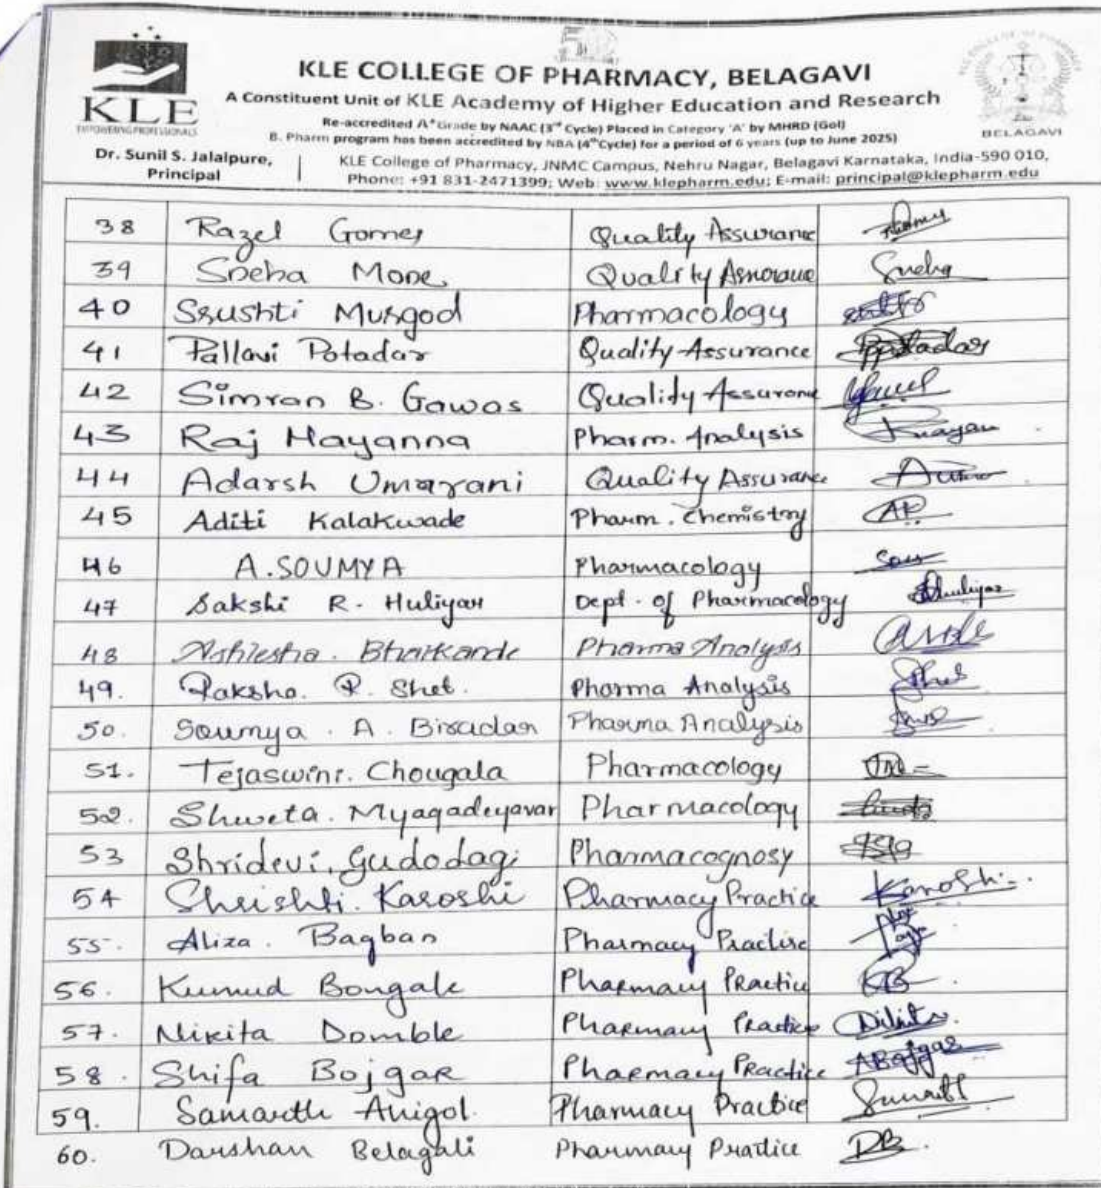 KLE
EMPOWERING PROFESSIONALS
KLE COLLEGE OF PHARMACY, BELAGAVI
A Constituent Unit of KLE Academy of Higher Education and Research
Re-accredited A+ Grade by NAAC (3rd Cycle) Placed in Category 'A' by MHRD (GoI)
B. Pharm program has been accredited by NBA (4th Cycle) for a period of 6 years (up to June 2025)
BELAGAVI
Dr. Sunil S. Jalalpure,
Principal
KLE College of Pharmacy, JNMC Campus, Nehru Nagar, Belagavi Karnataka, India-590 010,
Phone: +91 831-2471399; Web: www.klepharm.edu; E-mail: principal@klepharm.edu
38 Razel Gomes Quality Assurance
39 Sneha More Quality Assurance Sneha
40 Srushti Murgod Pharmacology
41 Pallavi Potadar Quality Assurance PPotadar
42 Simran B. Gawas Quality Assurance
43 Raj Mayanna Pharm. Analysis
44 Adarsh Umarani Quality Assurance
45 Aditi Kalakwade Pharm. Chemistry AK
46 A. SOUMYA Pharmacology Sou
47 Sakshi R. Huliyar Dept. of Pharmacology SHuliyar
48 Bhatkande Pharma Analysis
49. Raksha. R. Shet. Pharma Analysis Shet
50. Soumya . A. Biradar Pharma Analysis
51. Tejaswini. Chougala Pharmacology
52. Shweta. Myagadeyavar Pharmacology
53 Shridevi. Gudodagi Pharmacognosy
54 Shrishti. Karoshi Pharmacy Practice Karoshi
55. Aliza. Bagban Pharmacy Practise
56. Kumud Bongale Pharmacy Practice KB
57. Nikita Domble Pharmacy Practice Nikita
58. Shifa Bojgar Pharmacy Practice ABojgar
59. Samarth Anigol. Pharmacy Practice
60. Darshan Belagali Pharmacy Practice DB